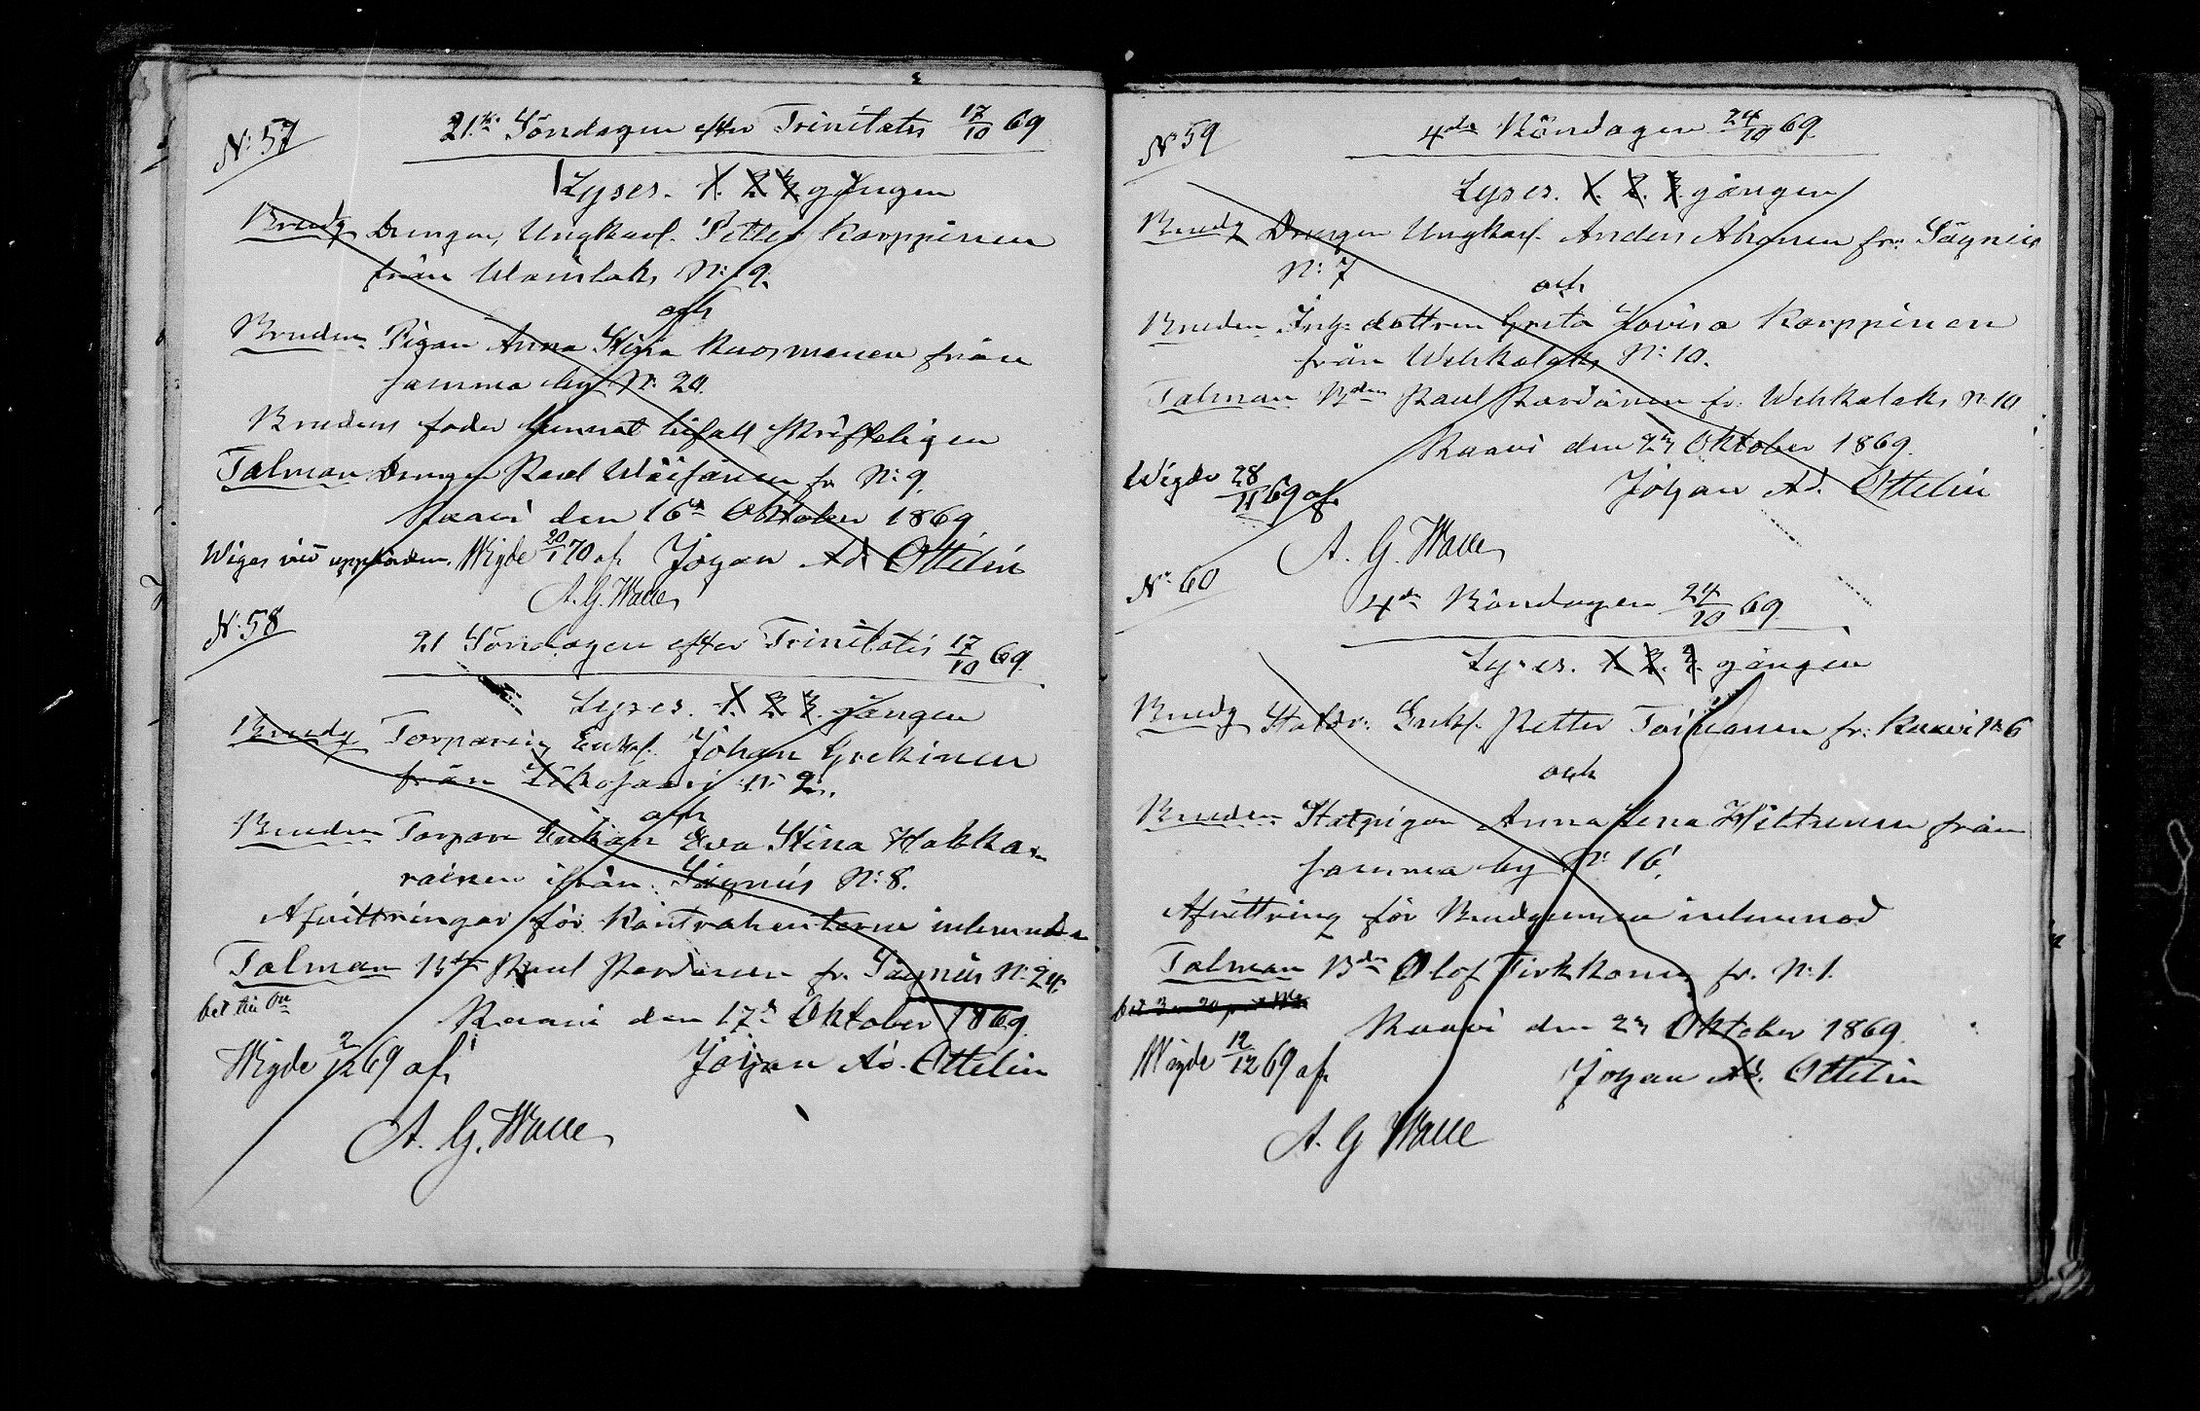 N: 57
21:ste Söndagen efter Trinitatis 17/10 69
Lyses. 1. 2. 3. gången
Brudg Drengen, Ungkarl. Petter Karppinen
från Wainlaks N: 9.
och
Bruden Pigan Anna Stina Kuosmanen från
samma by N: 20.
Brudens fader lemnat bifall skrifteligen
Talman Drengen Paul Wäisänen fr N: 9.
Kaavi den 16de Oktober 1869
Johan Ad. Ottelin
Wiges vid uppbörden. Wigde 20/1 70 af
A. G. Walle
N: 58
21 Söndagen efter Trinitatis 17/10 69.
Lyses. 1. 2. 3. gången
Brudg Torparen Enkl. Johan
från N: 2.
och
Bruden Torpare Enkan Eva Stina Hakka-
rainen ifrån Sägnäs N: 8.
Afvittringar för Kontrahenterne inlemnade
Talman Bdn Paul fr. Sägnäs N: 24.
Kaavi den 17de Oktober 1869.
Wigde 2/12 69 af
Johan Ad. Ottelin
A. G. Walle
N: 59
4de Böndagen 24/10 69.
Lyses. 1. 2. 3. gången
Brudg Drengen Ungkarl. Anders Ahonen fr: Sägnäs
N: 7
och
Bruden Inh: dottren Greta Lovisa Karppinen
från Wehkalaks N: 10.
Talman Bden Paul fr. Wehkalaks N: 10
Kaavi den 23 Oktober 1869.
Wigde 28/11 69 af
Johan Ad. Ottelin
A. G. Walle
N: 60
4de Böndagen 24/10 69.
Lyses. 1. 2. 3. gången
Brudg Statdr: Enkl. Petter Toivanen fr: Kaavi N: 6
och
Bruden Statpigan Anna Lena från
samma by N: 16.
Afvittring för Brudgummen inlemnad
Talman Bdn Olof Tirkkonen fr. N: 1.
Kaavi den 23 Oktober 1869.
Wigde 12/12 69 af
Johan Ad. Ottelin
A. G Walle